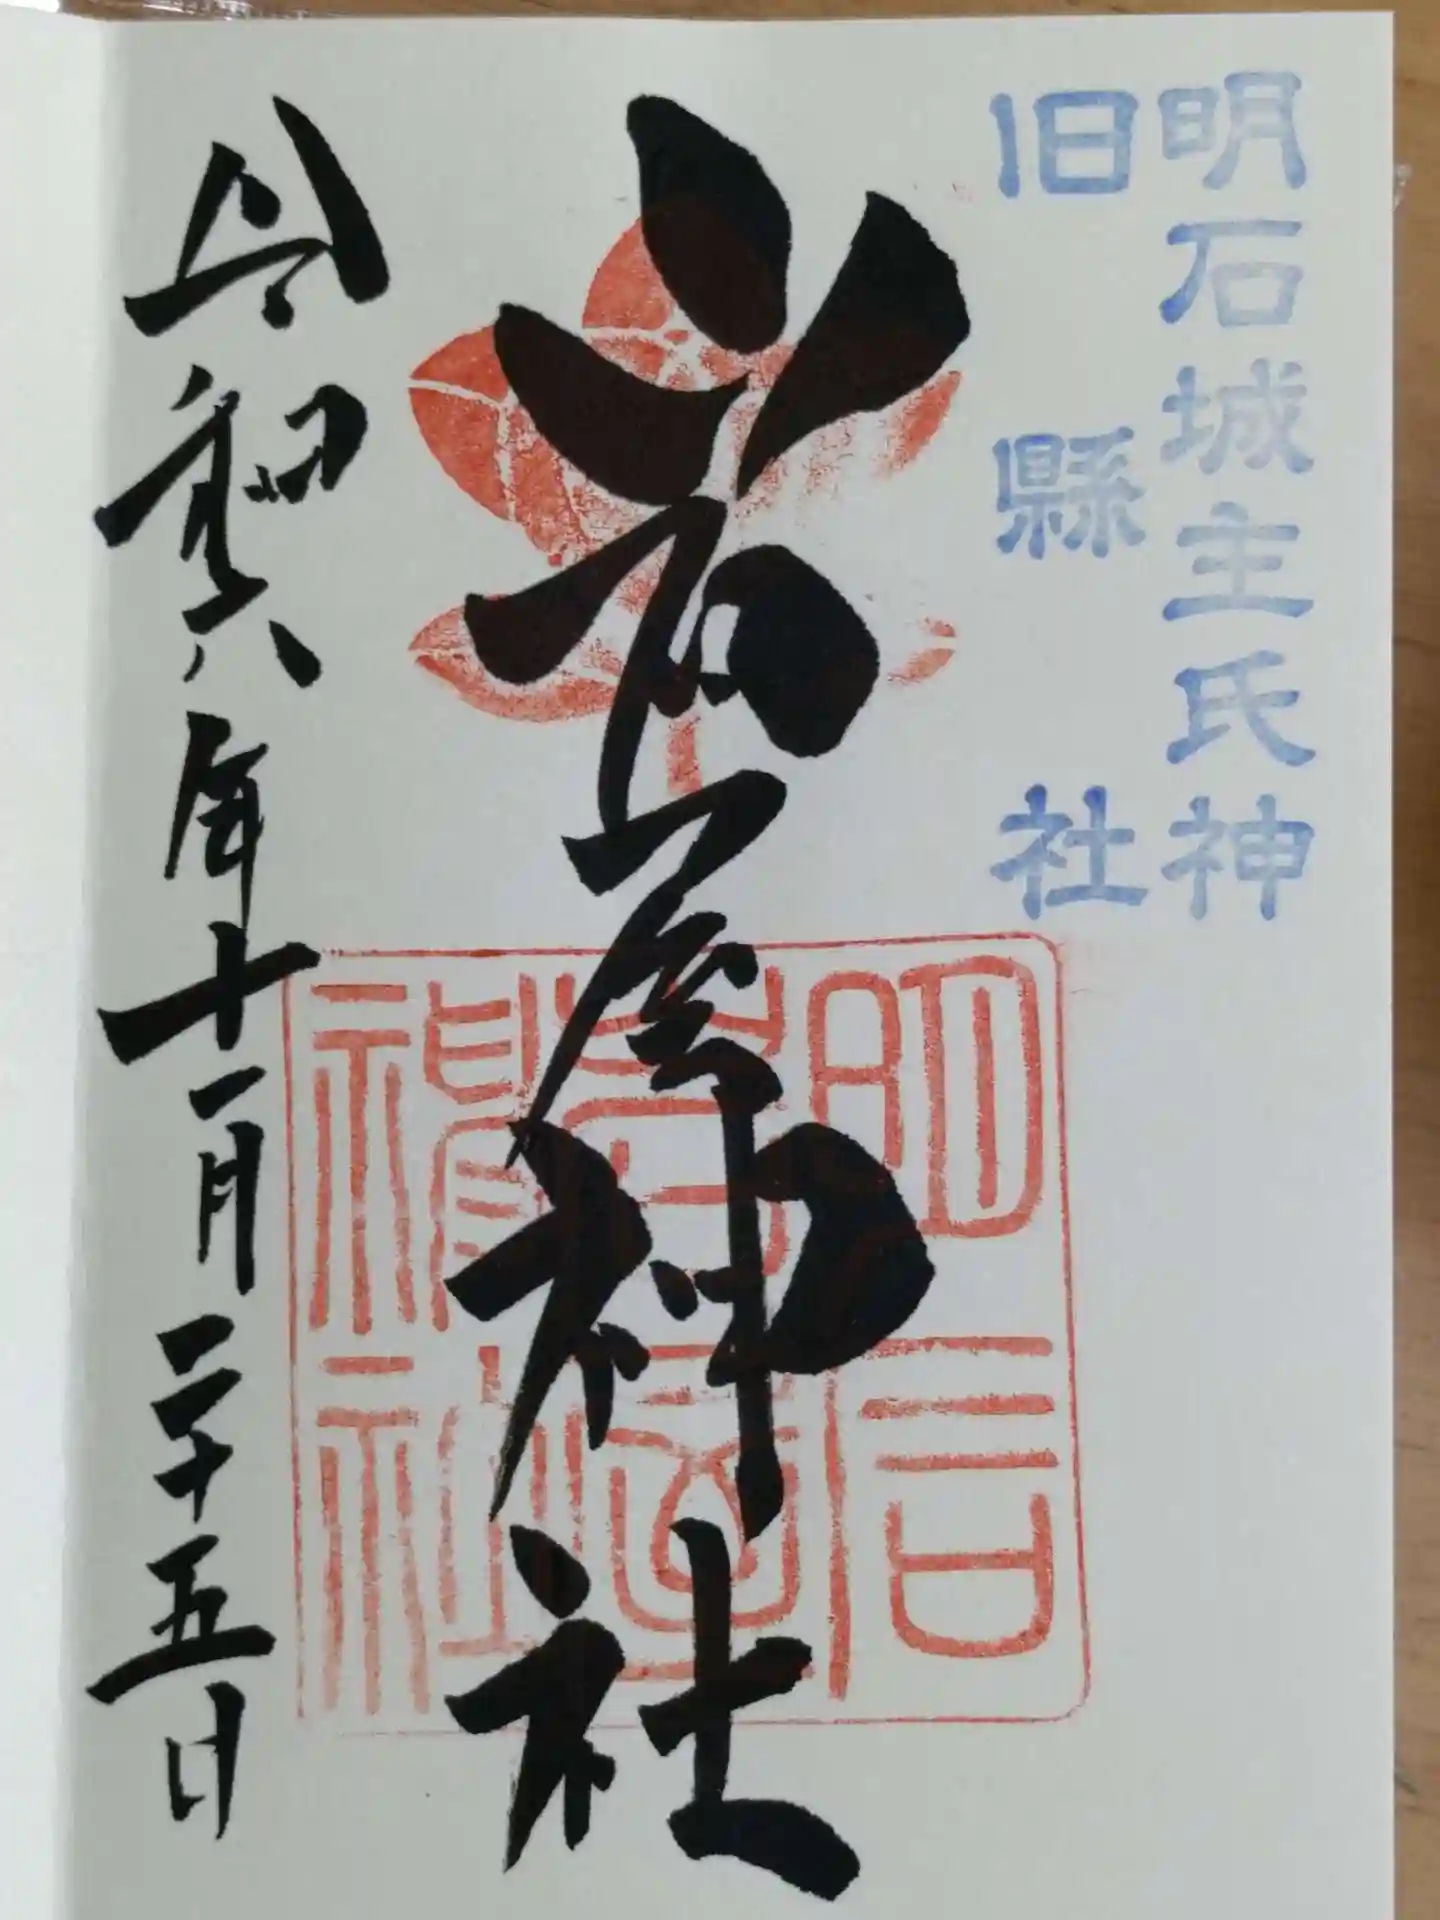 明石城主氏神
旧縣社
岩屋神社
令和六年十一月二十五日